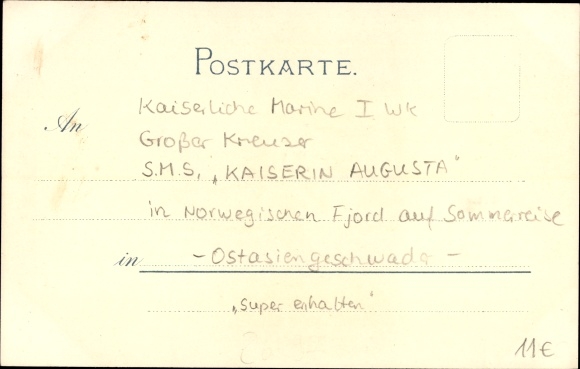 POSTKARTE.
An
Kaiserliche Marine I WK
Großer Kreuzer
S.M.S. „KAISERIN AUGUSTA“
in Norwegischen Fjord auf Sommerreise
in - Ostasiengeschwader -
„super erhalten“
11€